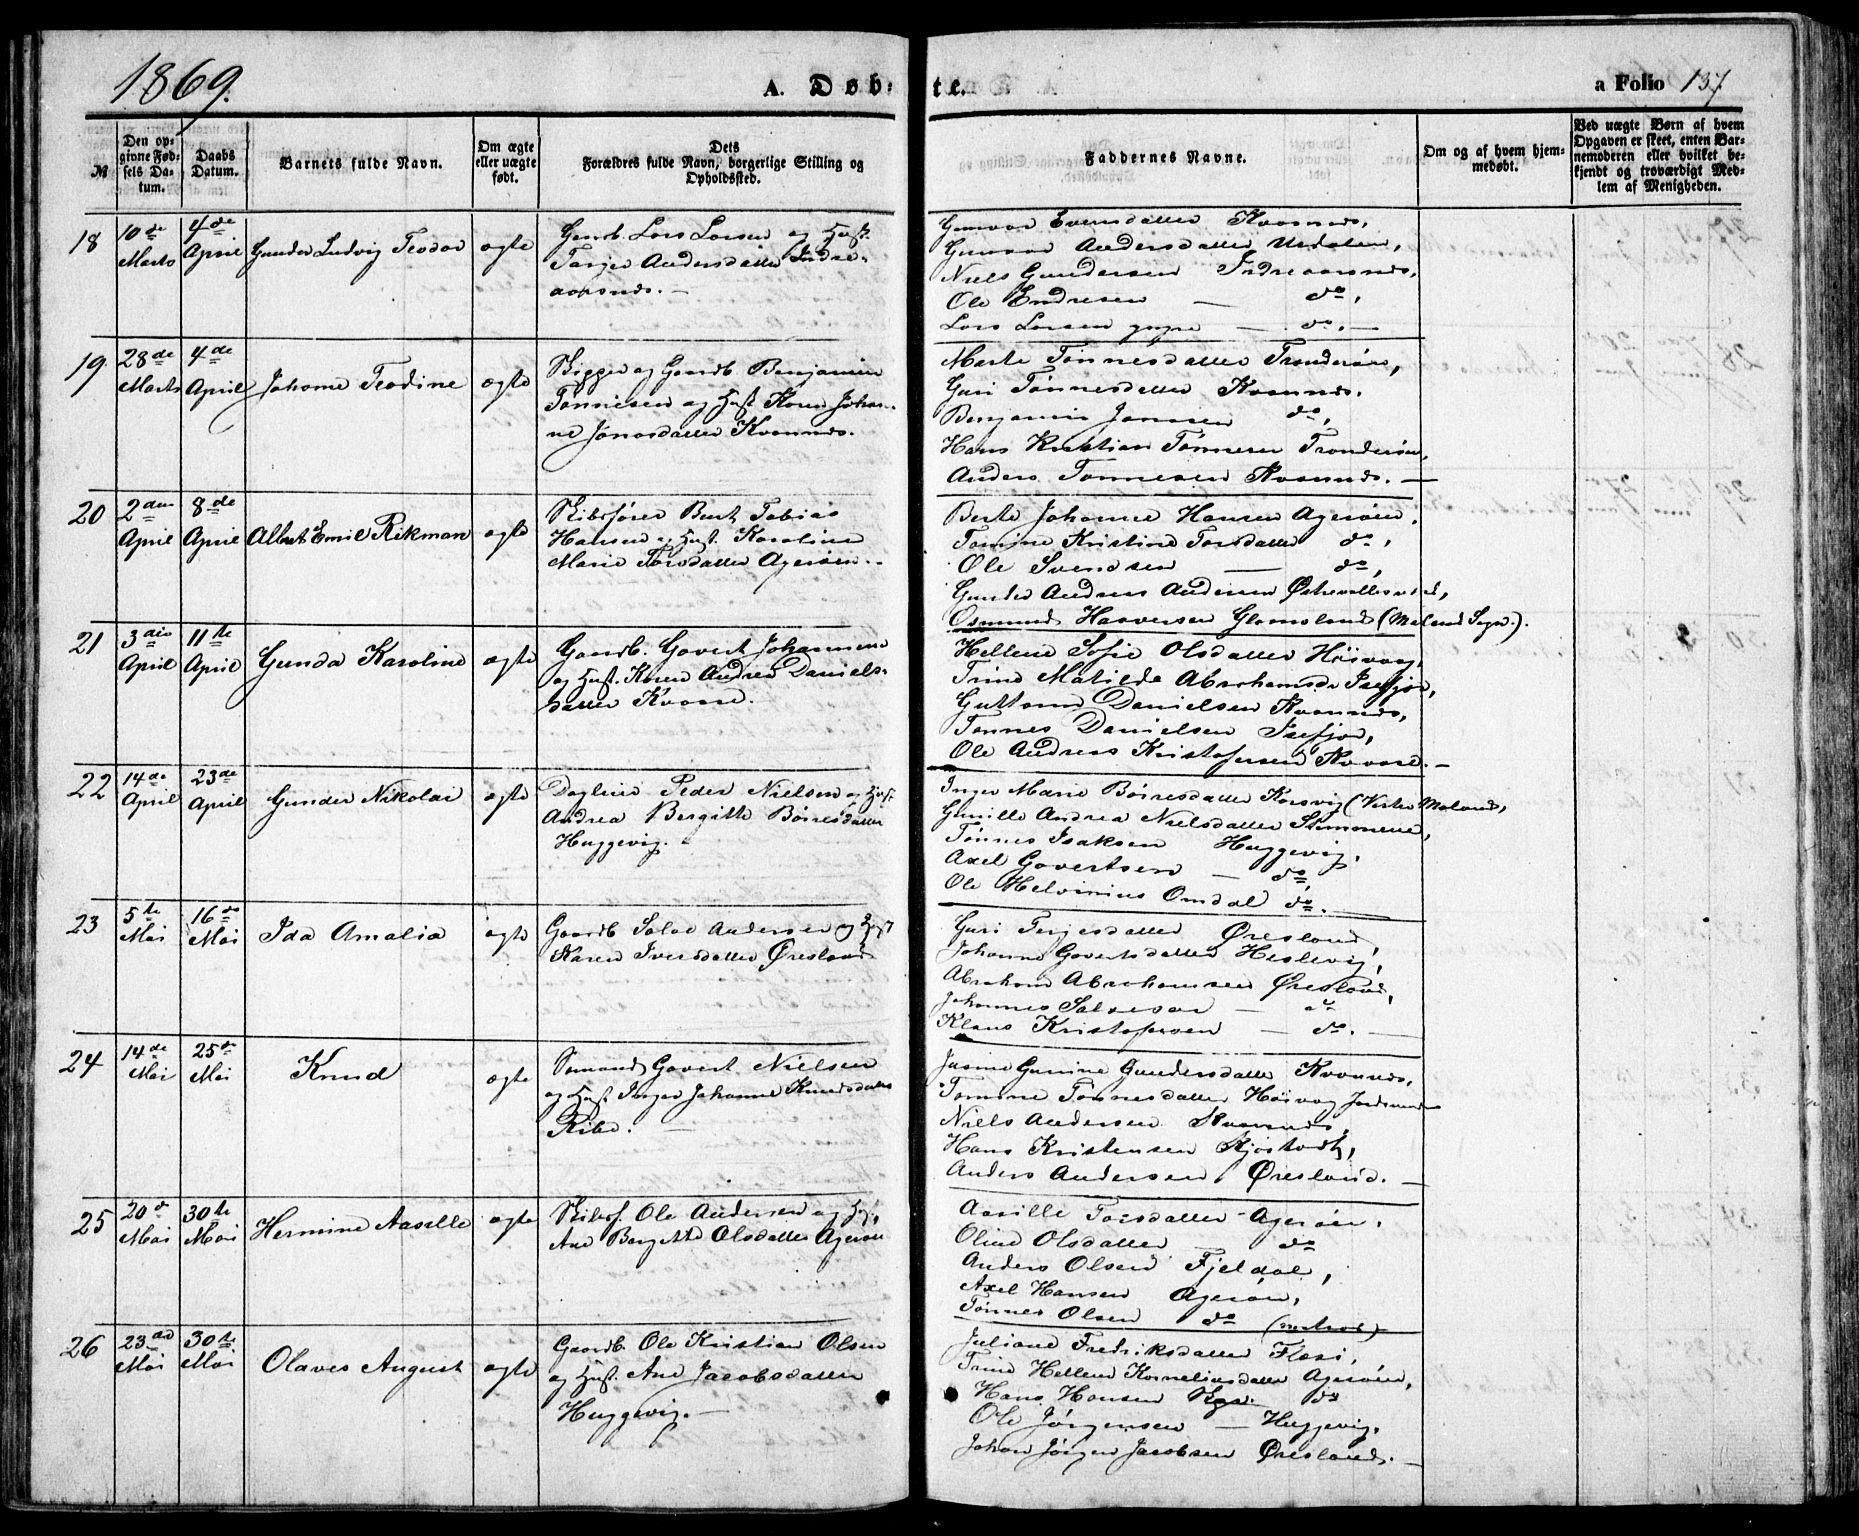 1869.
A. Døb-
te.
a Folio 137
№
Den op-
givne Fød-
sels Da-
tum.
Daabs
Datum.
Barnets fulde Navn.
Om ægte
eller uægte
født.
Dets
Forældres fulde Navn, borgerlige Stilling og
Opholdssted.
Faddernes Navne.
Om og af hvem hjem-
medøbt.
Ved uægte Børn af hvem
Opgaven er skeet, enten Bar-
nemoderen eller hvilket be-
kjendt og troværdigt Med-
lem af Menigheden.
18
10de
Marts
4de
April
Gunder Ludvig Teodor
ægte
Gaardb. Lars Larsen og Hust.
Andersdatter Indre-
aarsnes. -
Gunvor Evensdatter Kvannes,
Gunvor Andersdatter Urdalen,
Niels Gundersen Indreaarsnes,
Ole Endresen — do,
Lars Larsen yngre — do. —
19.
28de
Marts
4de
April
Johanne Teodine
ægte
og Gaardb Benjamin
Tønnesen og Hust Karen Johan-
ne Jonasdatter Kvannes.
Marte Tønnesdatter Trondøen,
Guri Tønnesdatter Kvannes.
Benjamin Jonsen do,
Hans Kristian Tønnesen Trondøen,
Anders Tønnesen Kvannes. —
20
2den
April
8de
April
Albert Emil Rikman
ægte
Skibsfører Bent Tobias
Hansen og Hust. Karoline
Marie Torsdatter Agerøen. -
Berte Johanne Hansen Agerøen,
Tomine Kristine Torsdatter do,
Ole Svendsen — do,
Gunder Andreas Andersen
Osmund Haaversen Glamsland (Moland Sogn.).
21
3die
April
11te
April
Gunda Karoline
ægte
Gaardb. Govert Johannesen
og Hust. Karen Andrea Daniels-
datter Kvaase.
Hellene Sofie Olsdatter Høivaag,
Trine Matilde Abrahamsdr Isefjær,
Guttorm Danielsen Kvannes,
Tønnes Danielsen Isefjær,
Ole Andreas Kristofersen Kvaase. —
22
14de
April
23de
April
Gunder Nikolai
ægte
Dagleier Peder Nielsen og Hust
Andrea Bergitte Børresdatter
Huggevig. -
Inger Marie Børresdatter Korsvig (Vestre Moland),
Gunille Andrea Nielsdatter
Tønnes Isaksen Huggevig,
Axel Govertsen — do,
Ole Helvinius Omdal do. —
23
5te
Mai
16de
Mai
Ida Amalia
ægte
Gaardb Salve Andersen og Hust
Karen Iversdatter Øresland
Guri Terjesdatter Øresland,
Johanne Govertsdatter Heslevig,
Abraham Abrahamsen Øresland,
Johannes Salvesen — do
Klaus Kristofersen — do. —
24
14de
Mai
25de
Mai
Knud
ægte
Sømand Govert Nielsen
og Hust Inger Johanne Knudsdatter
Ribe. —
Gunine Gundersdatter Kvannes,
Tomine Tønnesdatter Høivaag
Niels Andersen Kvannes,
Hans Kristensen
Anders Andersen Øresland. —
25
20de
Mai
30te
Mai
Hermine Aaselle
ægte
Skibsf. Ole Andersen og Hust,
Ane Bergitte Olsdatter Agerøen
Aasille Torsdatter Agerøen,
Oline Olsdatter — do
Anders Olsen Fjeldal,
Axel Hansen Agerøen,
Tønnes Olsen do
26
23de
Mai
30te
Mai
Olaves August
ægte
Gaardb. Ole Kristian Olsen
og Hust. Ane Jacobsdatter
Huggevig. —
Juliane Fredriksdatter
Trine Hellene Korneliusdatter Agerøen,
Hans Hansen do
Ole Jørgensen — Huggevig,
Johan Jørgen Jacobsen Øresland. —